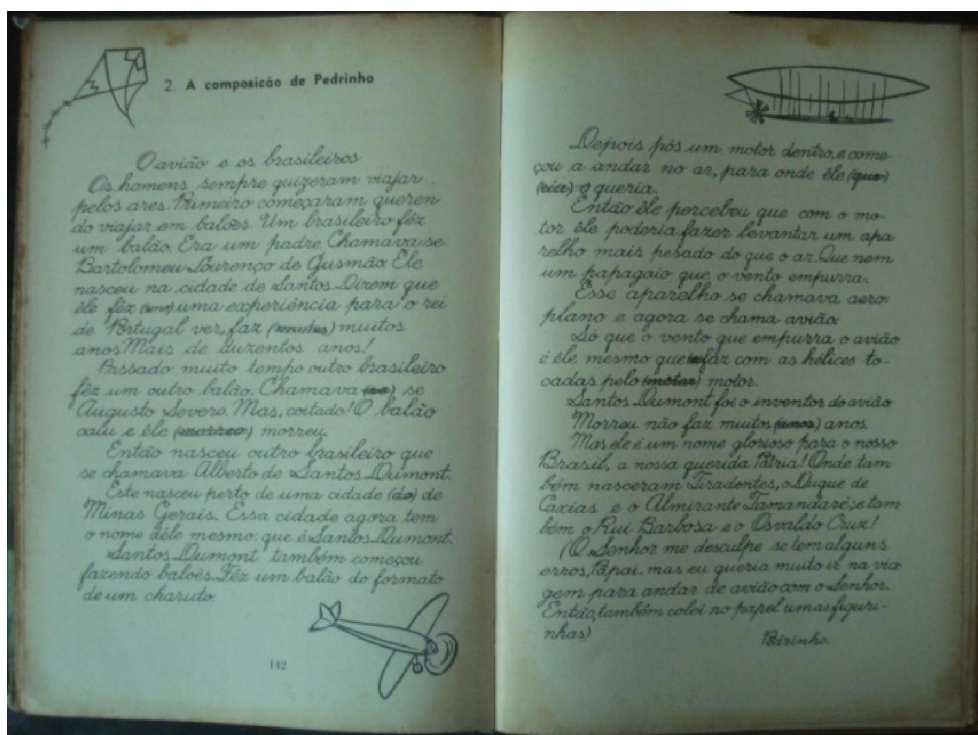 2. A composição de Pedrinho
O avião e os brasileiros
Os homens sempre quizeram viajar
pelos ares. Primeiro começaram queren
do viajar em balões. Um brasileiro fêz
um balão. Era um padre. Chamava-se
Bartolomeu Lourenço de Gusmão. Ele
nasceu na cidade de Santos. Dizem que
êle fêz uma experiência para o rei
de Portugal ver, faz muitos
anos. Mais de duzentos anos!
Passado muito tempo outro brasileiro
fêz um outro balão. Chamava se
Augusto Severo. Mas, coitado! O balão
caiu e êle (morreo) morreu.
Então nasceu outro brasileiro que
se chamava Alberto de Santos Dumont.
Este nasceu perto de uma cidade (do) de
Minas Gerais. Essa cidade agora tem
o nome dêle mesmo, que é Santos Dumont.
Santos Dumont também começou
fazendo balões. Fêz um balão do formato
de um charuto.
142
Depois pôs um motor dentro, e come-
çou a andar no ar, para onde êle (que-
ria) o queria.
Então êle percebeu que com o mo-
tor êle poderia fazer levantar um apa
relho mais pesado do que o ar. Que nem
um papagaio que o vento empurra.
Esse aparelho se chamava aero
plano e agora se chama avião.
Só que o vento que empurra o avião
é êle mesmo que faz com as hélices to-
cadas pelo (motor) motor.
Santos Dumont foi o inventor do avião
Morreu não faz muitos (anos) anos
Mas ele é um nome glorioso para o nosso
Brasil, a nossa querida Pátria! Onde tam
bém nasceram Tiradentes, o Duque de
Caxias e o Almirante Tamandaré; e tam
bém o Rui Barbosa e o Osvaldo Cruz!
(O Senhor me desculpe se tem alguns
erros, Papai, mas eu queria muito ir na via
gem para andar de avião com o Senhor.
Então, também colei no papel umas figuri-
nhas)
Pedrinho